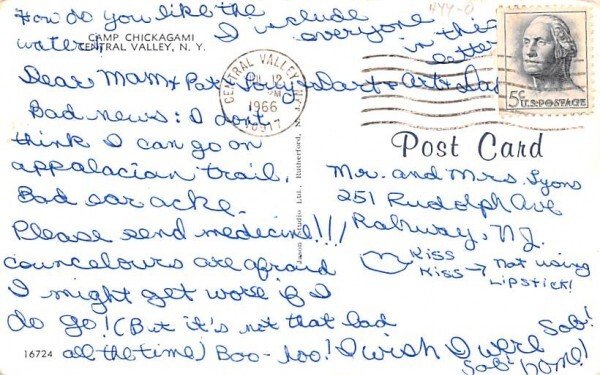 How do you like the
water!
I include
everyone in this
letter
CAMP CHICKAGAMI
CENTRAL VALLEY, N. Y.
Dear Mam + Pat, + Dart + Art + Dad
Bad news: I dont
think I can go on
appalacian trail.
Bad ear acke.
Please send medicine!!!
councelours are afraid
I might get worse if I
do go! (But it's not that bad
all the time) Boo-hoo! I wish I were
home!
Sob!
Sob!
16724
CENTRAL VALLEY, N.Y.
12
PM
1966
10917
5¢
U.S. POSTAGE
Post Card
Mr. and Mrs. Lyons
251 Rudolph Ave
Rahway, N.J.
Kiss
Kiss → Not using
Lipstick!
Rutherford, N.